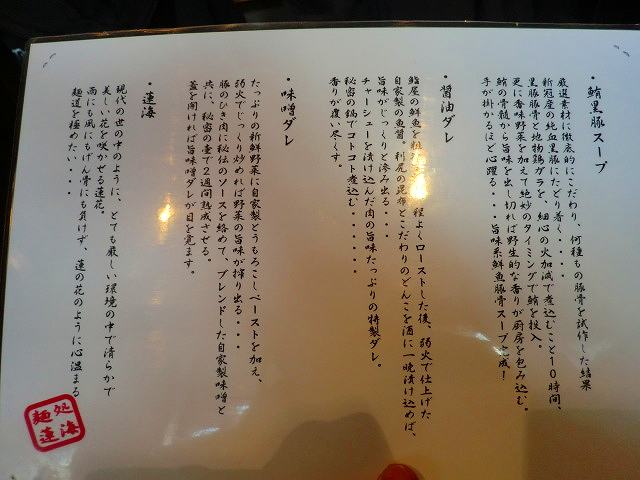 ・鮪黒豚スープ
厳選素材に徹底的にこだわり、何種もの豚骨を試作した結果
新冠産の純血黒豚にたどり着く・・・・
黒豚豚骨と地物鶏ガラを、細心の火加減で煮込むこと10時間、
更に香味野菜を加えて絶妙のタイミングで鮪を投入。
鮪の骨髄から旨味を出し切れば野生的な香りが厨房を包み込む。
手が掛かるほど心躍る・・・旨味系鮮魚豚骨スープ完成!
・醤油ダレ
鮨屋の鮮魚を 程よくローストした後、弱火で仕上げた
自家製の魚醤。利尻の昆布とこだわりのどんこを酒に一晩漬け込めば、
旨味がじっくりと滲み出る・・・
チャーシューを漬け込んだ肉の旨味たっぷりの特製ダレ。
秘密の鍋でコトコト煮込む・・・・・
香りが復い尽くす。
・味噌ダレ
たっぷりの新鮮野菜に自家製とうもろこしペーストを加え、
弱火でじっくり炒めれば野菜の旨味が搾り出る・・・
豚のひき肉に秘伝のソースを絡めて、ブレンドした自家製味噌と
共に、秘密の壷で2週間熟成させる。
蓋を開ければ旨味噌ダレが目を覚ます。
・蓮海
現代の世の中のように、とても厳しい環境の中で清らかで
美しい花を咲かせる蓮花。
雨にも風にもげん骨にも負けず、蓮の花のように心温まる
麺道を極めたい・・・
麺処
蓮海